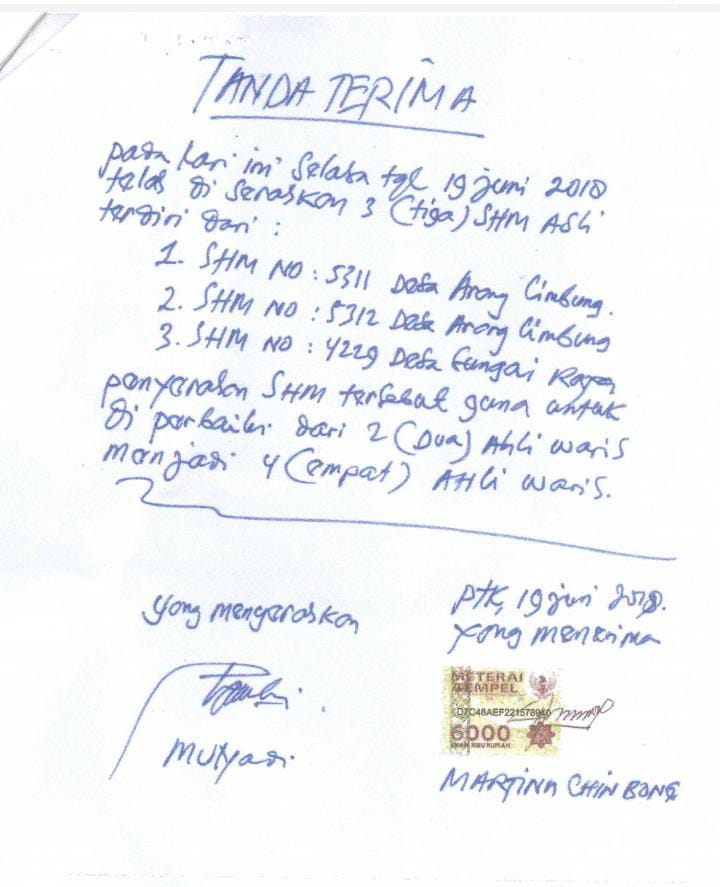 TANDA TERIMA
pada hari ini Selasa tgl 19 juni 2018
telah di serahkan 3 (tiga) SHM ASLi
terdiri dari :
1. SHM NO : 5311 Desa Arang Limbung.
2. SHM NO : 5312 Desa Arang Limbung
3. SHM NO : 4229 Desa Sungai Raya
penyerahan SHM tersebut guna untuk
di perbaiki dari 2 (Dua) Ahli waris
menjadi 4 (empat) AHLi waris.
yang menyerahkan
PTK, 19 juni 2018.
yang menerima
METERAI
TEMPEL
D7C48AEF221578940
6000
ENAM RIBU RUPIAH
MULYADI
MARTINA CHIN BONG